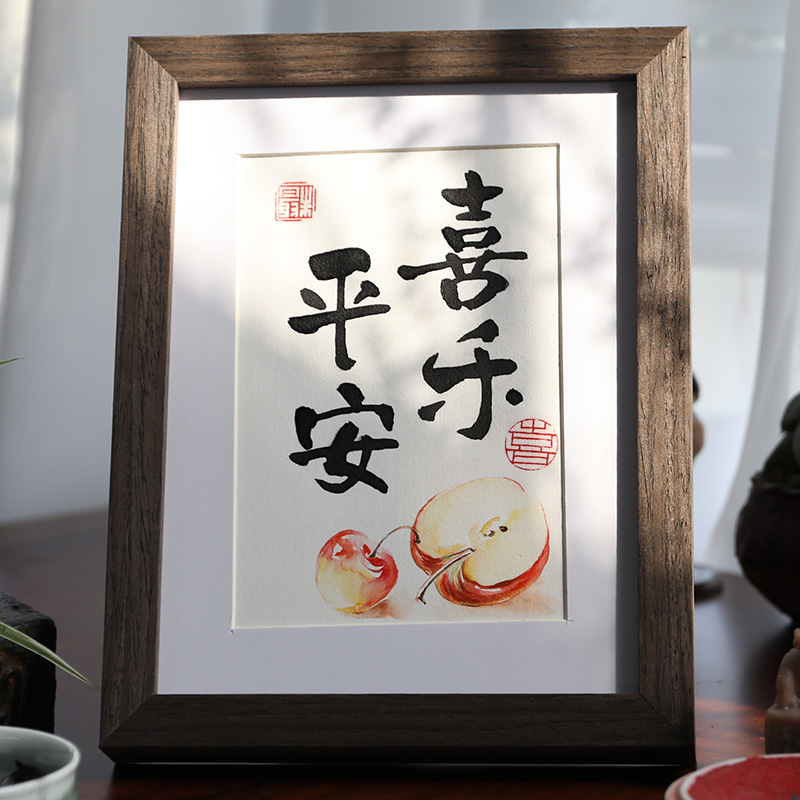 喜乐
平安
喜